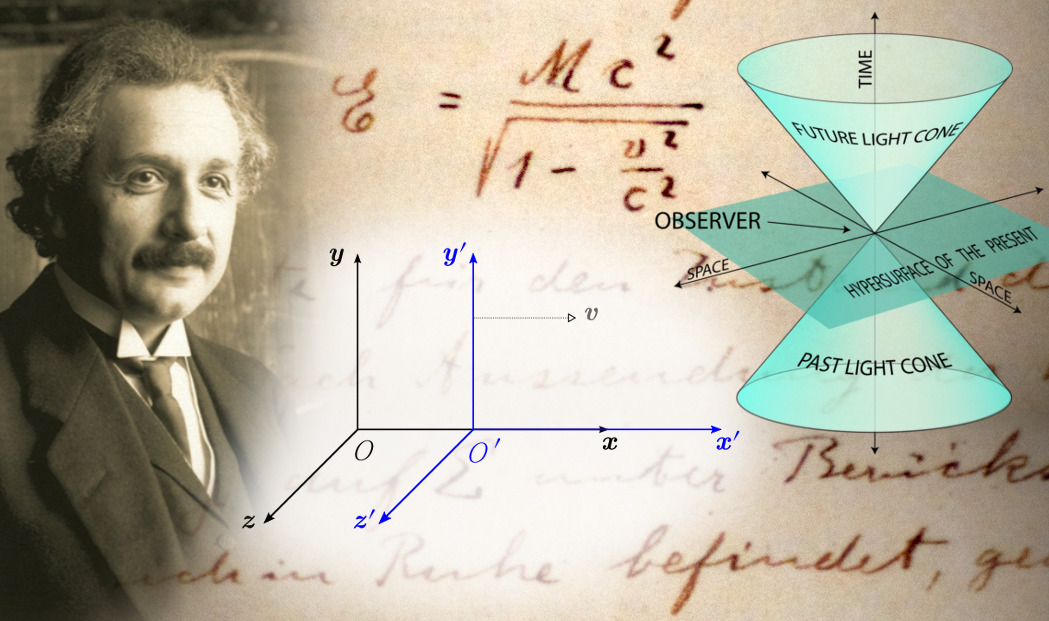 E = Mc² / √(1 - v²/c²)
TIME
FUTURE LIGHT CONE
OBSERVER
SPACE
HYPERSURFACE OF THE PRESENT
SPACE
PAST LIGHT CONE
y
y′
v
O
O′
x
x′
z
z′
für den
nach Aussendung
auf Z unter Berücks
sich in Ruhe befindet,